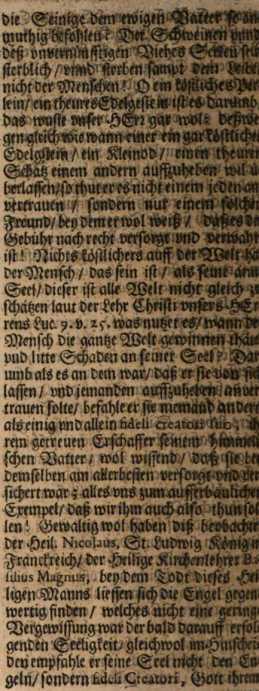 die Seinige dem ewigen Vatter so an-
muthig befohlen? Der Schweinen vnnd
deß vnvernünfftigen Viehes Seelen seyn
sterblich / vnnd sterben sampt dem Leibe
nicht der Menschen! O ein köstliches Per-
lein / ein theures Edelgestein ist es darumb,
das wuste vnser HErr gar wol: deßwe-
gen gleich wie wann einer ein gar köstlichen
Edelgstein / ein Kleinod / einen theuren
Schatz einem andern auffzuheben wil ü-
berlassen / so thut er es nicht einem jeden an-
vertrauen / sondern nur einem solchen
Freund / bey dem er wol weiß / daß es der
Gebühr nach recht versorgt vnd verwahrt
ist! Nichts köstlichers auff der Welt hat
der Mensch / das sein ist / als seine arme
Seel / dieser ist alle Welt nicht gleich zu
schätzen laut der Lehr Christi vnsers HEr-
rens Luc. 9. v. 25. was nutzet es / wann der
Mensch die gantze Welt gewinnen thäte
vnd litte Schaden an seiner Seel? Dar-
umb als es an dem war / daß er sie von sich
lassen / vnd jemanden auffzuheben / anver-
trauen solte / befahle er sie niemand andern
als einig vnd allein fideli creatori suo, ih-
rem getreuen Erschaffer seinem himmeli-
schen Vatter / wol wissend / daß sie bey
demselben am allerbesten versorgt vnd ver-
sichert war; alles vns zum aufferbaulichen
Exempel / daß wir ihm auch also thun sol-
len! Gewaltig wol haben diß beobachtet
der Heil. Nicolaus, St. Ludwig König in
Franckreich / der Heilige Kirchenlehrer Ba-
silius Magnus, bey dem Todt dieses Hei-
ligen Manns liessen sich die Engel gegen-
wertig finden / welches nicht eine geringe
Vergewissung war der bald darauff erfol-
genden Seeligkeit / gleichwol im Hinscheiden
den empfahle er seine Seel nicht den En-
geln / sondern fideli Creatori, Gott ihrem